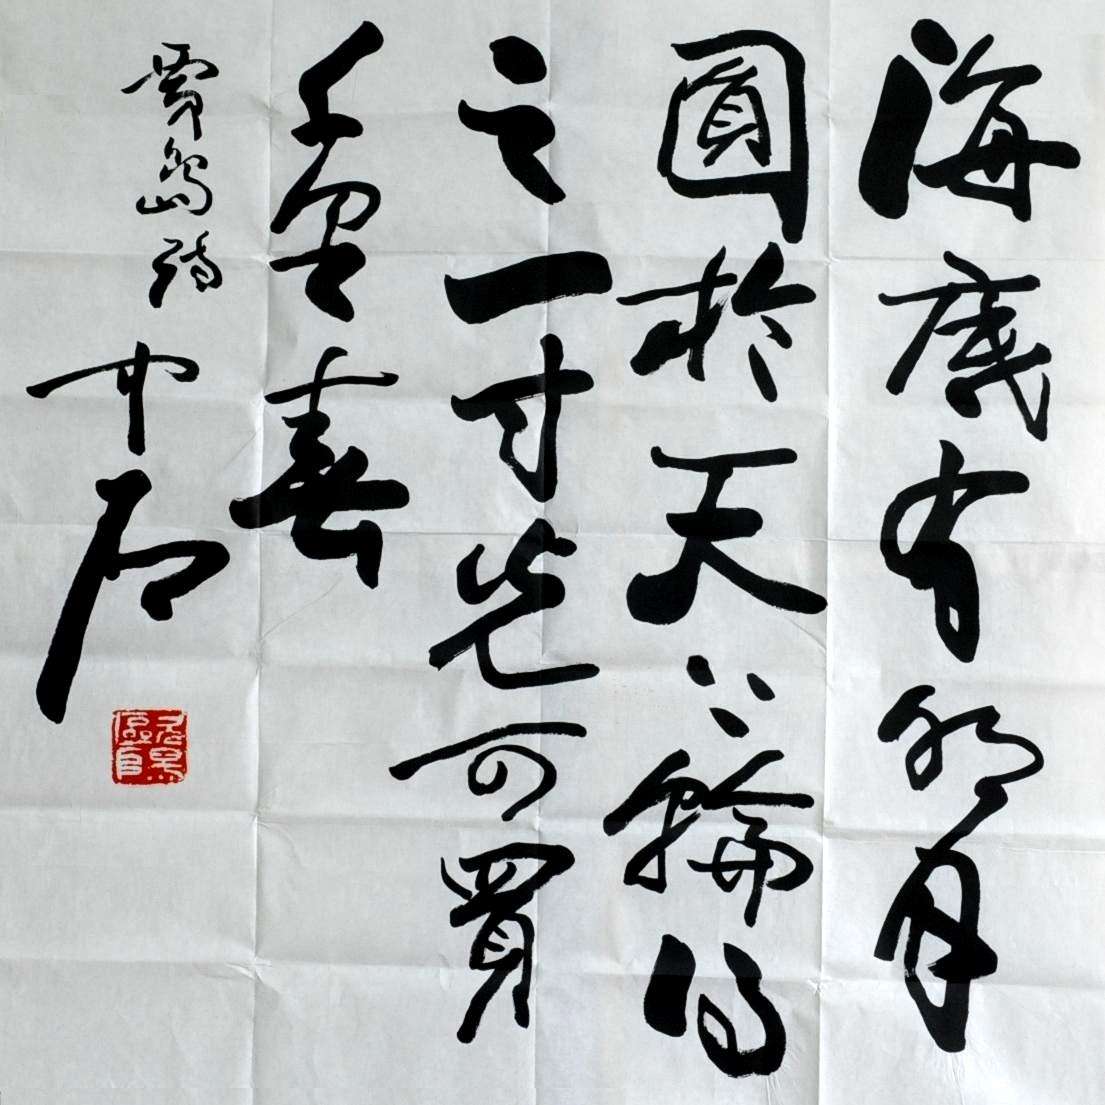 海底有明月
圓於天上輪得
之一寸光可買
千里春
賈島詩 中石